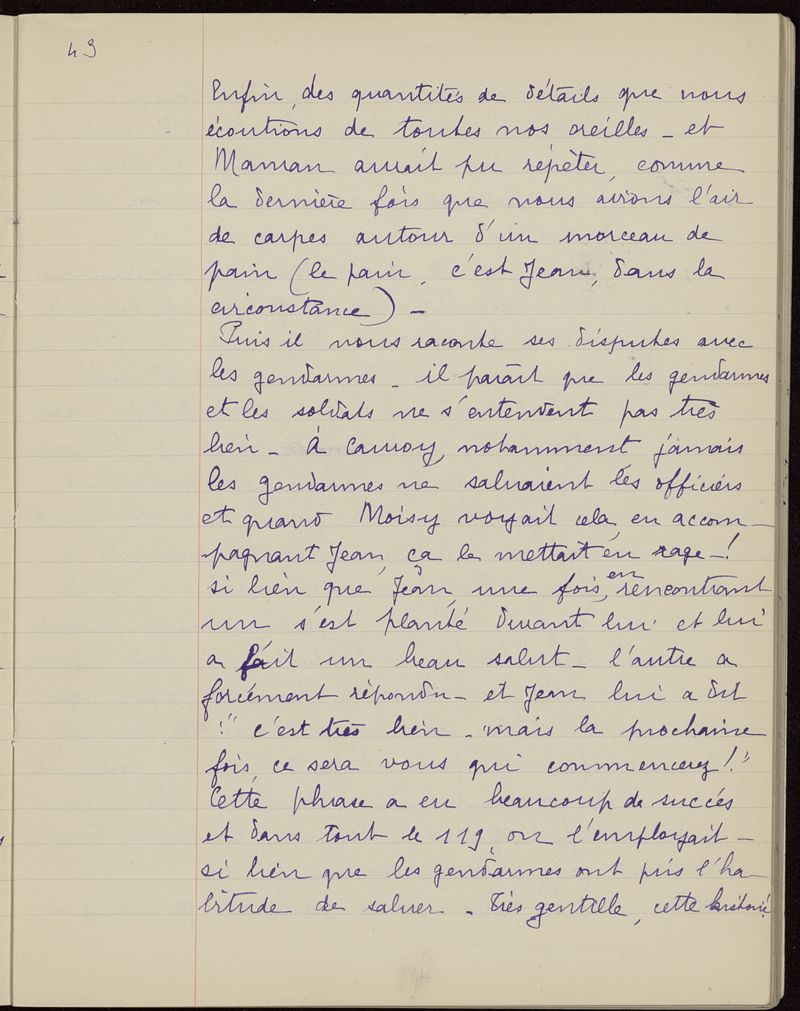 49
Enfin, des quantités de détails que nous
écoutions de toutes nos oreilles - et
Maman aurait pu répéter, comme
la dernière fois que nous avions l'air
de carpes autour d'un morceau de
pain (le pain, c'est Jean, dans la
circonstance) -
Puis il nous raconte ses disputes avec
les gendarmes - il paraît que les gendarmes
et les soldats ne s'entendent pas très
bien - À Carnoy, notamment jamais
les gendarmes ne saluaient les officiers
et quand Moisy voyait cela, en accom-
pagnant Jean, ça le mettait en rage - !
si bien que Jean, une fois, en rencontrant
un s'est planté devant lui et lui
a fait un beau salut - l'autre a
forcément répondu - et Jean lui a dit
: "c'est très bien - mais la prochaine
fois, ce sera vous qui commencerez !"
Cette phrase a eu beaucoup de succès
et dans tout le 119, on l'employait -
si bien que les gendarmes ont pris l'ha-
bitude de saluer - Très gentille, cette histoire!